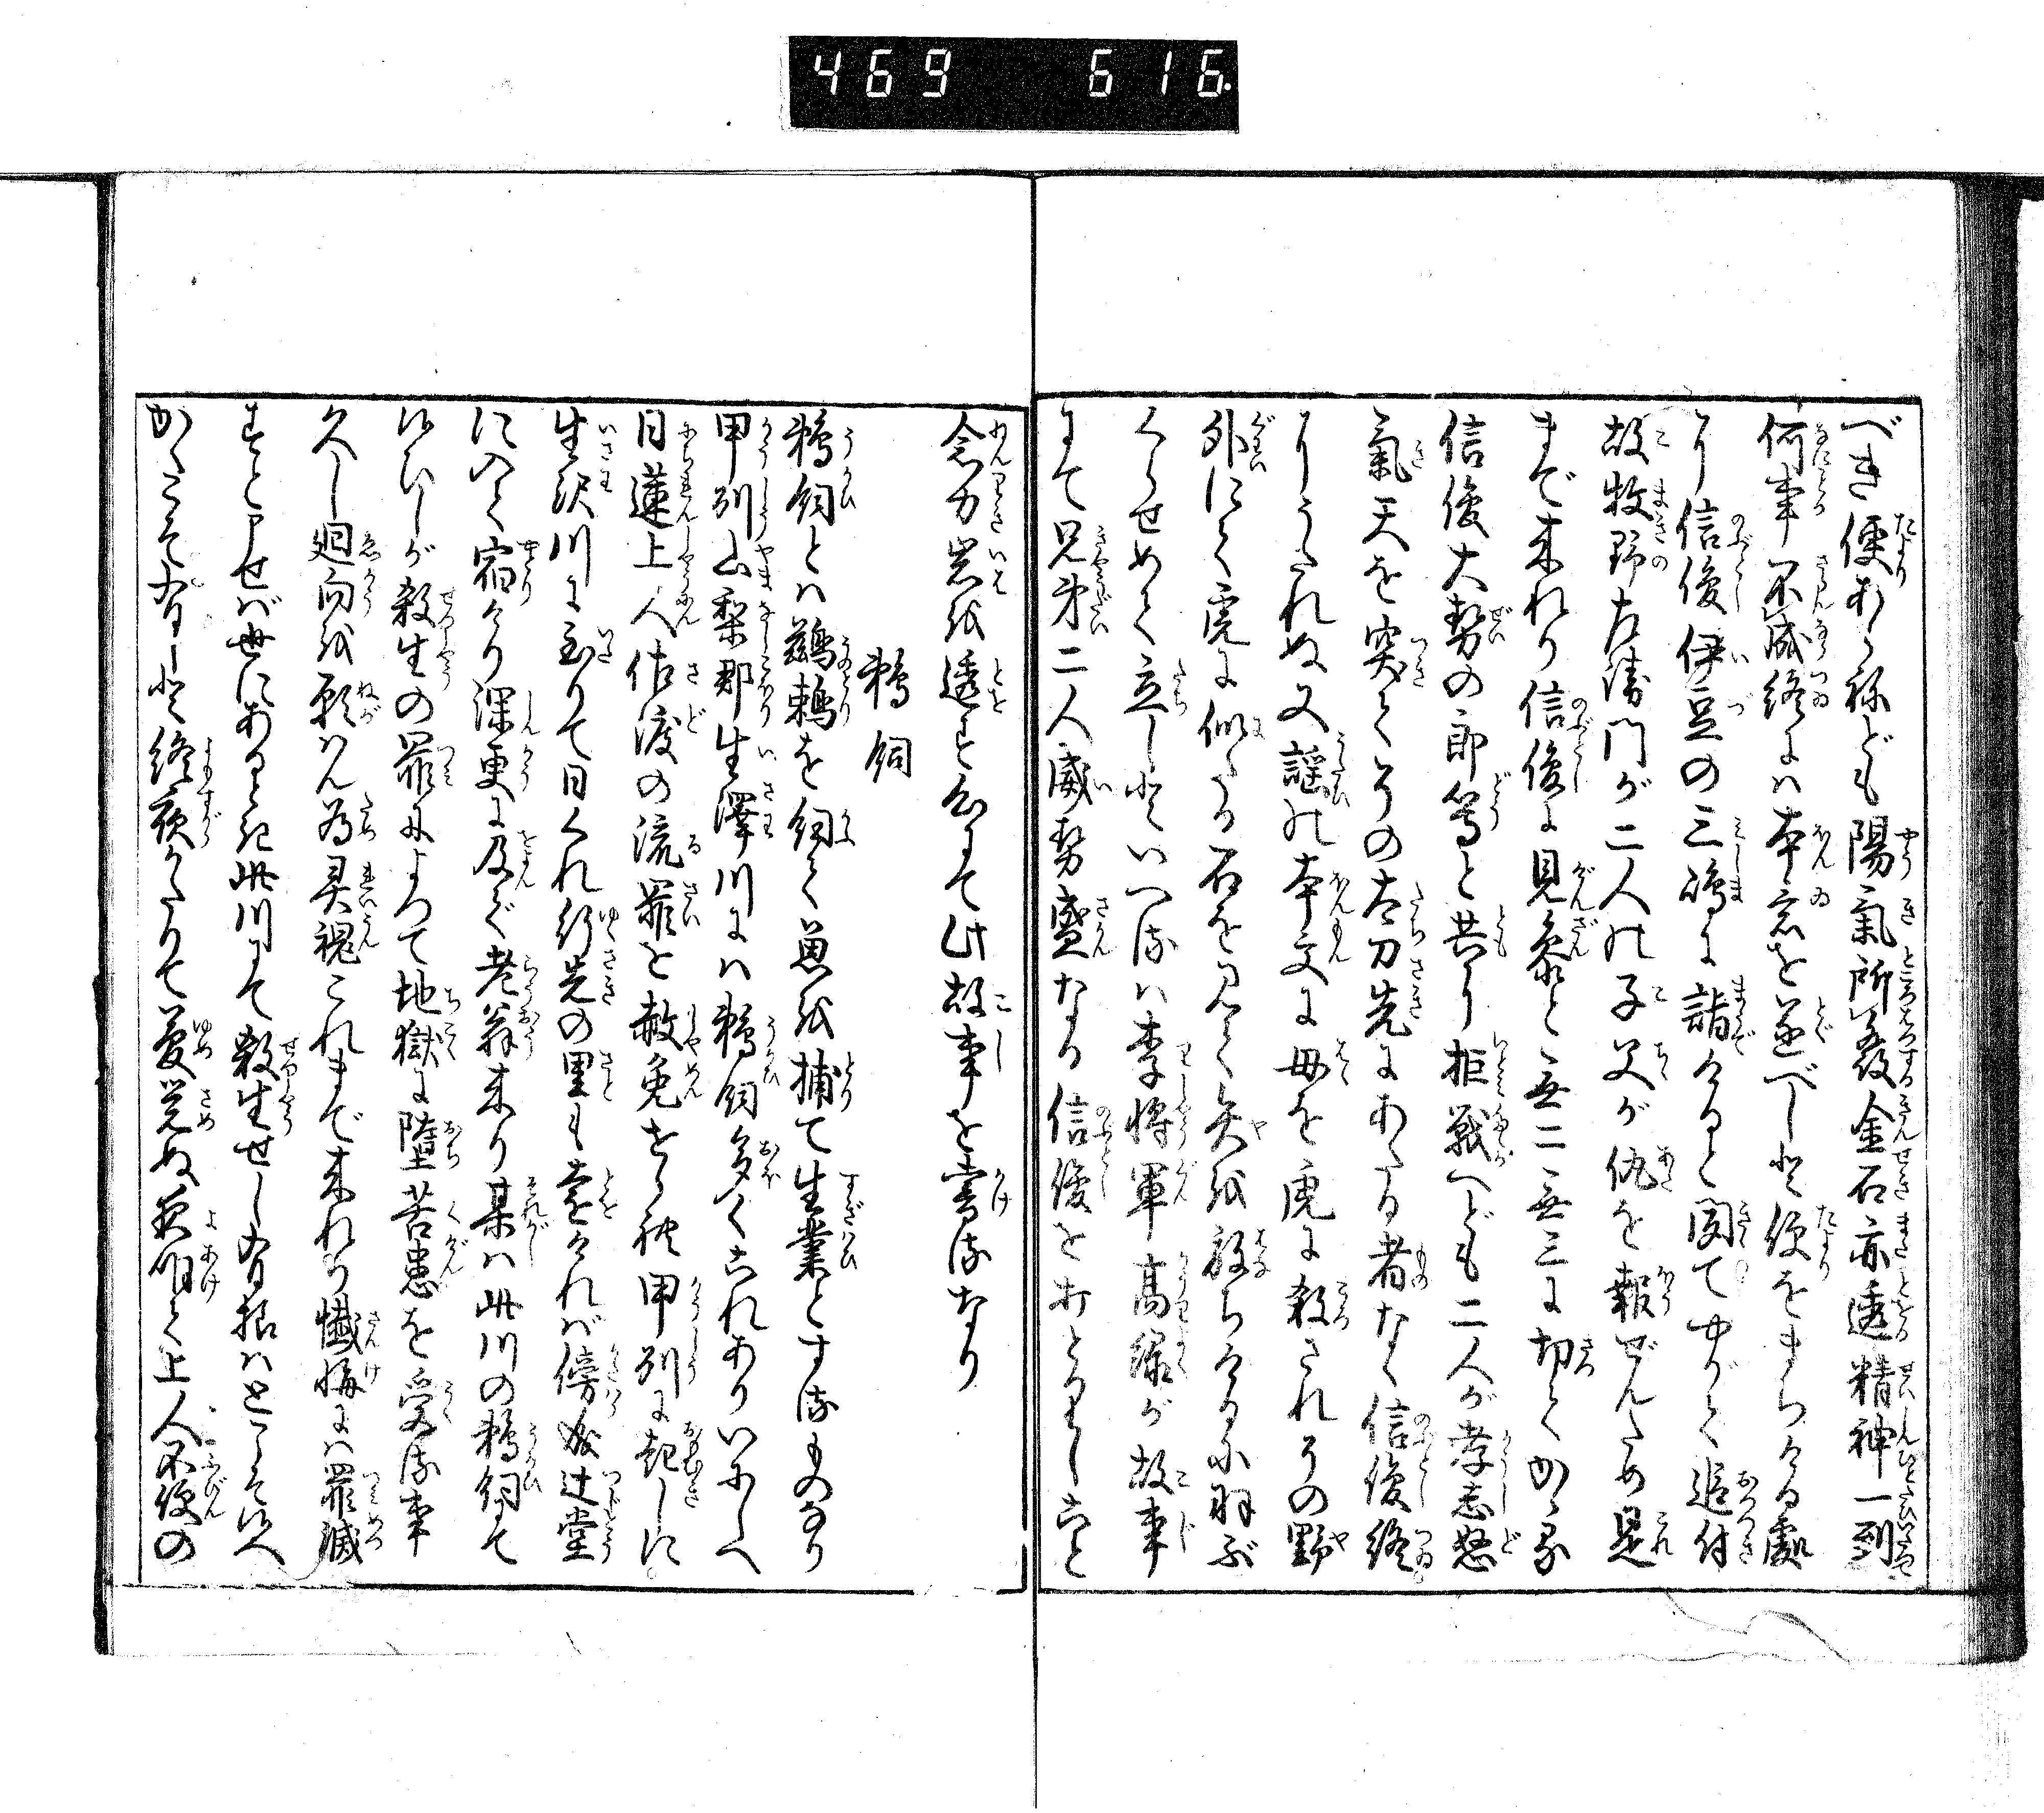 469 616
べき便あらねども陽氣所發金石亦透精神一到
何事不成終には本意を遂べしと便をまちける處
に信俊伊豆の三嶋に詣けると聞てやがて追付
故牧野左衛門が二人の子父が仇を報ぜんため是
まで来れり信俊に見参と無二無三に切てかゝる
信俊大勢の郎等と共に拒戦へども二人が孝志怒
氣天を突てその太刀先にあたる者なく信俊終
にうたれぬ又謡の本文に母を虎に殺されその野
外にて虎に似たる石を見て矢を放ちけるに羽ぶ
くらせめて立しといへるは李将軍高緑が故事
にて兄弟二人威勢盛なる信俊をおとりしこと
念力岩を透す心にて此故事を寄るなり
鵜飼
鵜飼とは鸕鷀を飼て魚を捕て生業とするものなり
甲刕山梨郡生澤川には鵜飼多くこれありいにしへ
日蓮上人佐渡の流罪を赦免せられ甲刕に赴しに
生沢川に至りて日くれ行先の里も遠ければ傍成辻堂
に入て宿けり深更に及で老翁来り某は此川の鵜飼にて
候ひしが殺生の罪によつて地獄に墮苦患を受る事
久し廻向を願はん為霊魂これまで来れり懺悔には罪滅
すと申せば世にありし時此川にて殺生せし有様はとこそ候へ
かくこそ有しと終夜かたりて夢覚ぬ夜明て上人不便の